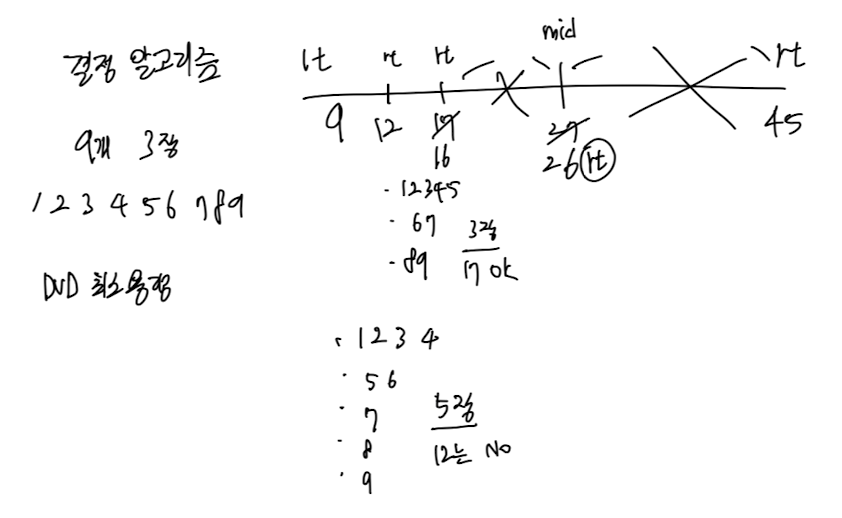 결정 알고리즘
9개 3장
1 2 3 4 5 6 7 8 9
DVD 최소용량
mid
lt rt rt rt
9 12 17 27 45
16 26 rt
1 2 3 4 5
6 7
8 9
3장
17 OK
1 2 3 4
5 6
7
8
9
5장
12는 NO